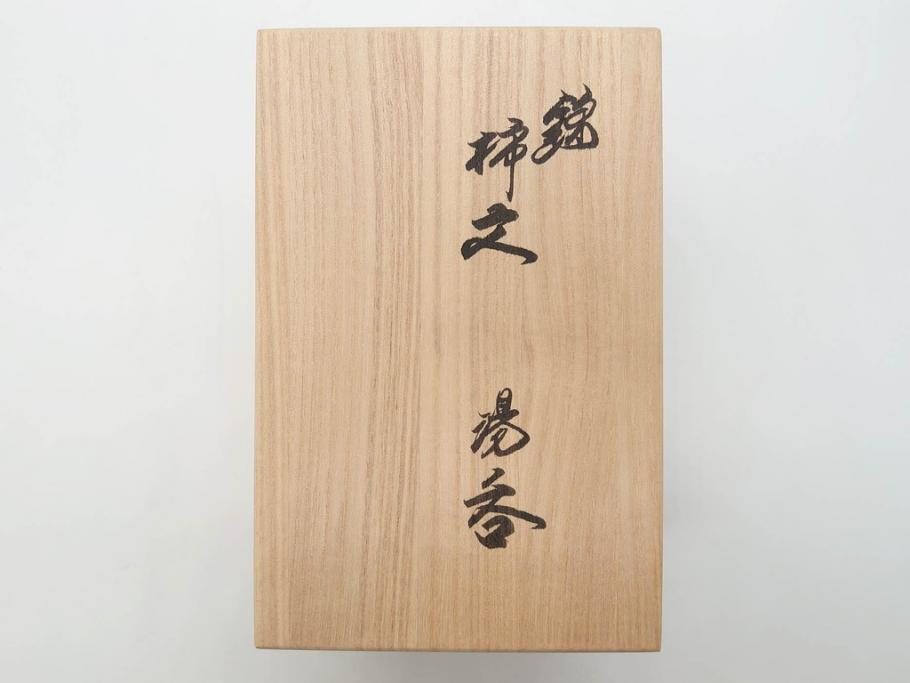 錦
柿文 湯呑